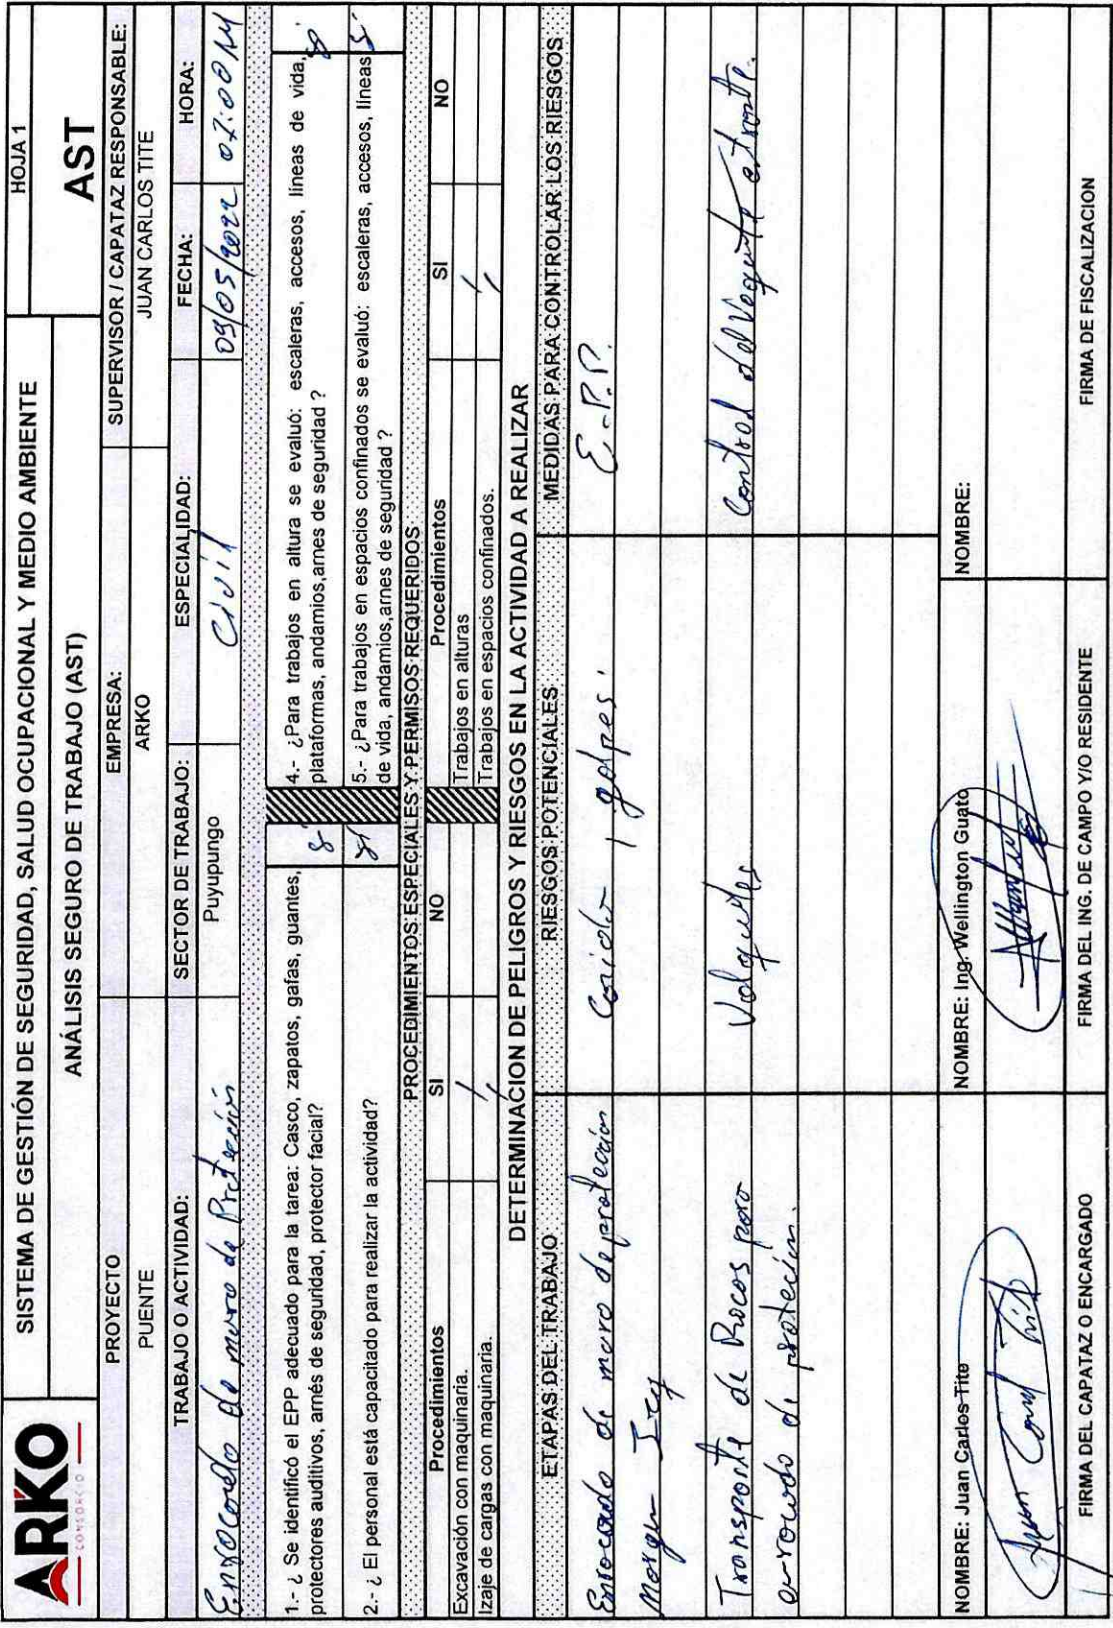 ARKO
CONSORCIO
SISTEMA DE GESTIÓN DE SEGURIDAD, SALUD OCUPACIONAL Y MEDIO AMBIENTE
HOJA 1
ANÁLISIS SEGURO DE TRABAJO (AST)
AST
PROYECTO
EMPRESA:
SUPERVISOR / CAPATAZ RESPONSABLE:
PUENTE
ARKO
JUAN CARLOS TITE
TRABAJO O ACTIVIDAD:
SECTOR DE TRABAJO:
ESPECIALIDAD:
FECHA:
HORA:
Enrocado de muro de Protección
Puyupungo
Civil
09/05/2022
07:00
1.- ¿ Se identificó el EPP adecuado para la tarea: Casco, zapatos, gafas, guantes,
protectores auditivos, arnés de seguridad, protector facial?
si
4.- ¿Para trabajos en altura se evaluó: escaleras, accesos, líneas de vida,
plataformas, andamios,arnes de seguridad ?
si
2.- ¿ El personal está capacitado para realizar la actividad?
si
5.- ¿Para trabajos en espacios confinados se evaluó: escaleras, accesos, líneas
de vida, andamios,arnes de seguridad ?
si
PROCEDIMIENTOS ESPECIALES Y PERMISOS REQUERIDOS
Procedimientos
SI
NO
Procedimientos
SI
NO
Excavación con maquinaria.
/
Trabajos en alturas
/
Izaje de cargas con maquinaria.
/
Trabajos en espacios confinados.
/
DETERMINACION DE PELIGROS Y RIESGOS EN LA ACTIVIDAD A REALIZAR
ETAPAS DEL TRABAJO
RIESGOS POTENCIALES
MEDIDAS PARA CONTROLAR LOS RIESGOS
Enrocado de muro de protección
Caidas , golpes.
E.P.P.
Margen Izq
Transporte de Rocas para
Volquetes
Control del
enrocado de protecion.
NOMBRE: Juan Carlos Tite
NOMBRE: Ing. Wellington Guato
NOMBRE:
Juan Carlos Tite
FIRMA DEL CAPATAZ O ENCARGADO
FIRMA DEL ING. DE CAMPO Y/O RESIDENTE
FIRMA DE FISCALIZACION